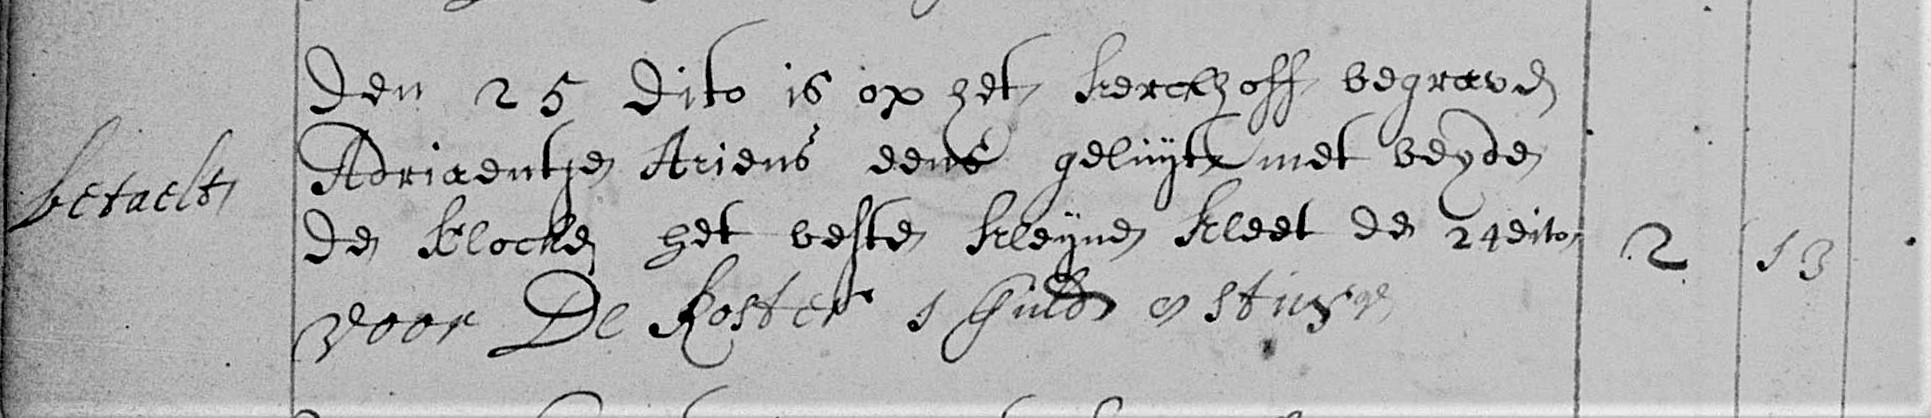 Den 25 dito is op het kerckhoff begraven
Adriaentje Ariens eens geluyt met beyde
betaelt
de klocken het beste kleyne kleet de 24 dito 2 13
voor De koster 1 guld stuyv